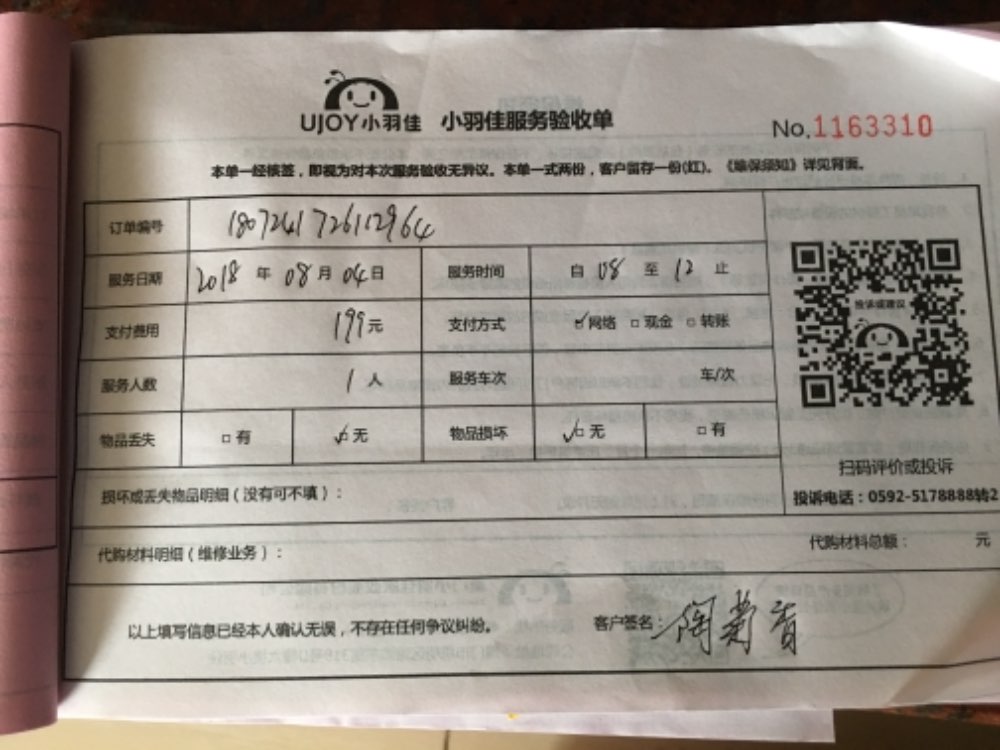 UJOY小羽佳 小羽佳服务验收单
No.1163310
本单一经核签，即视为对本次服务验收无异议。本单一式两份，客户留存一份(红)。《维保须知》详见背面。
订单编号 180724172612964
服务日期 2018 年 08 月 04 日 服务时间 自 08 至 12 止
支付费用 199元 支付方式 ☑网络 □ 现金 □ 转账
服务人数 1 人 服务车次 车/次
物品丢失 □ 有 ☑ 无 物品损坏 ☑ 无 □ 有
投诉或建议
扫码评价或投诉
投诉电话：0592-5178888转2
损坏或丢失物品明细（没有可不填）：
代购材料明细（维修业务）： 代购材料总额： 元
以上填写信息已经本人确认无误，不存在任何争议纠纷。 客户签名：陶